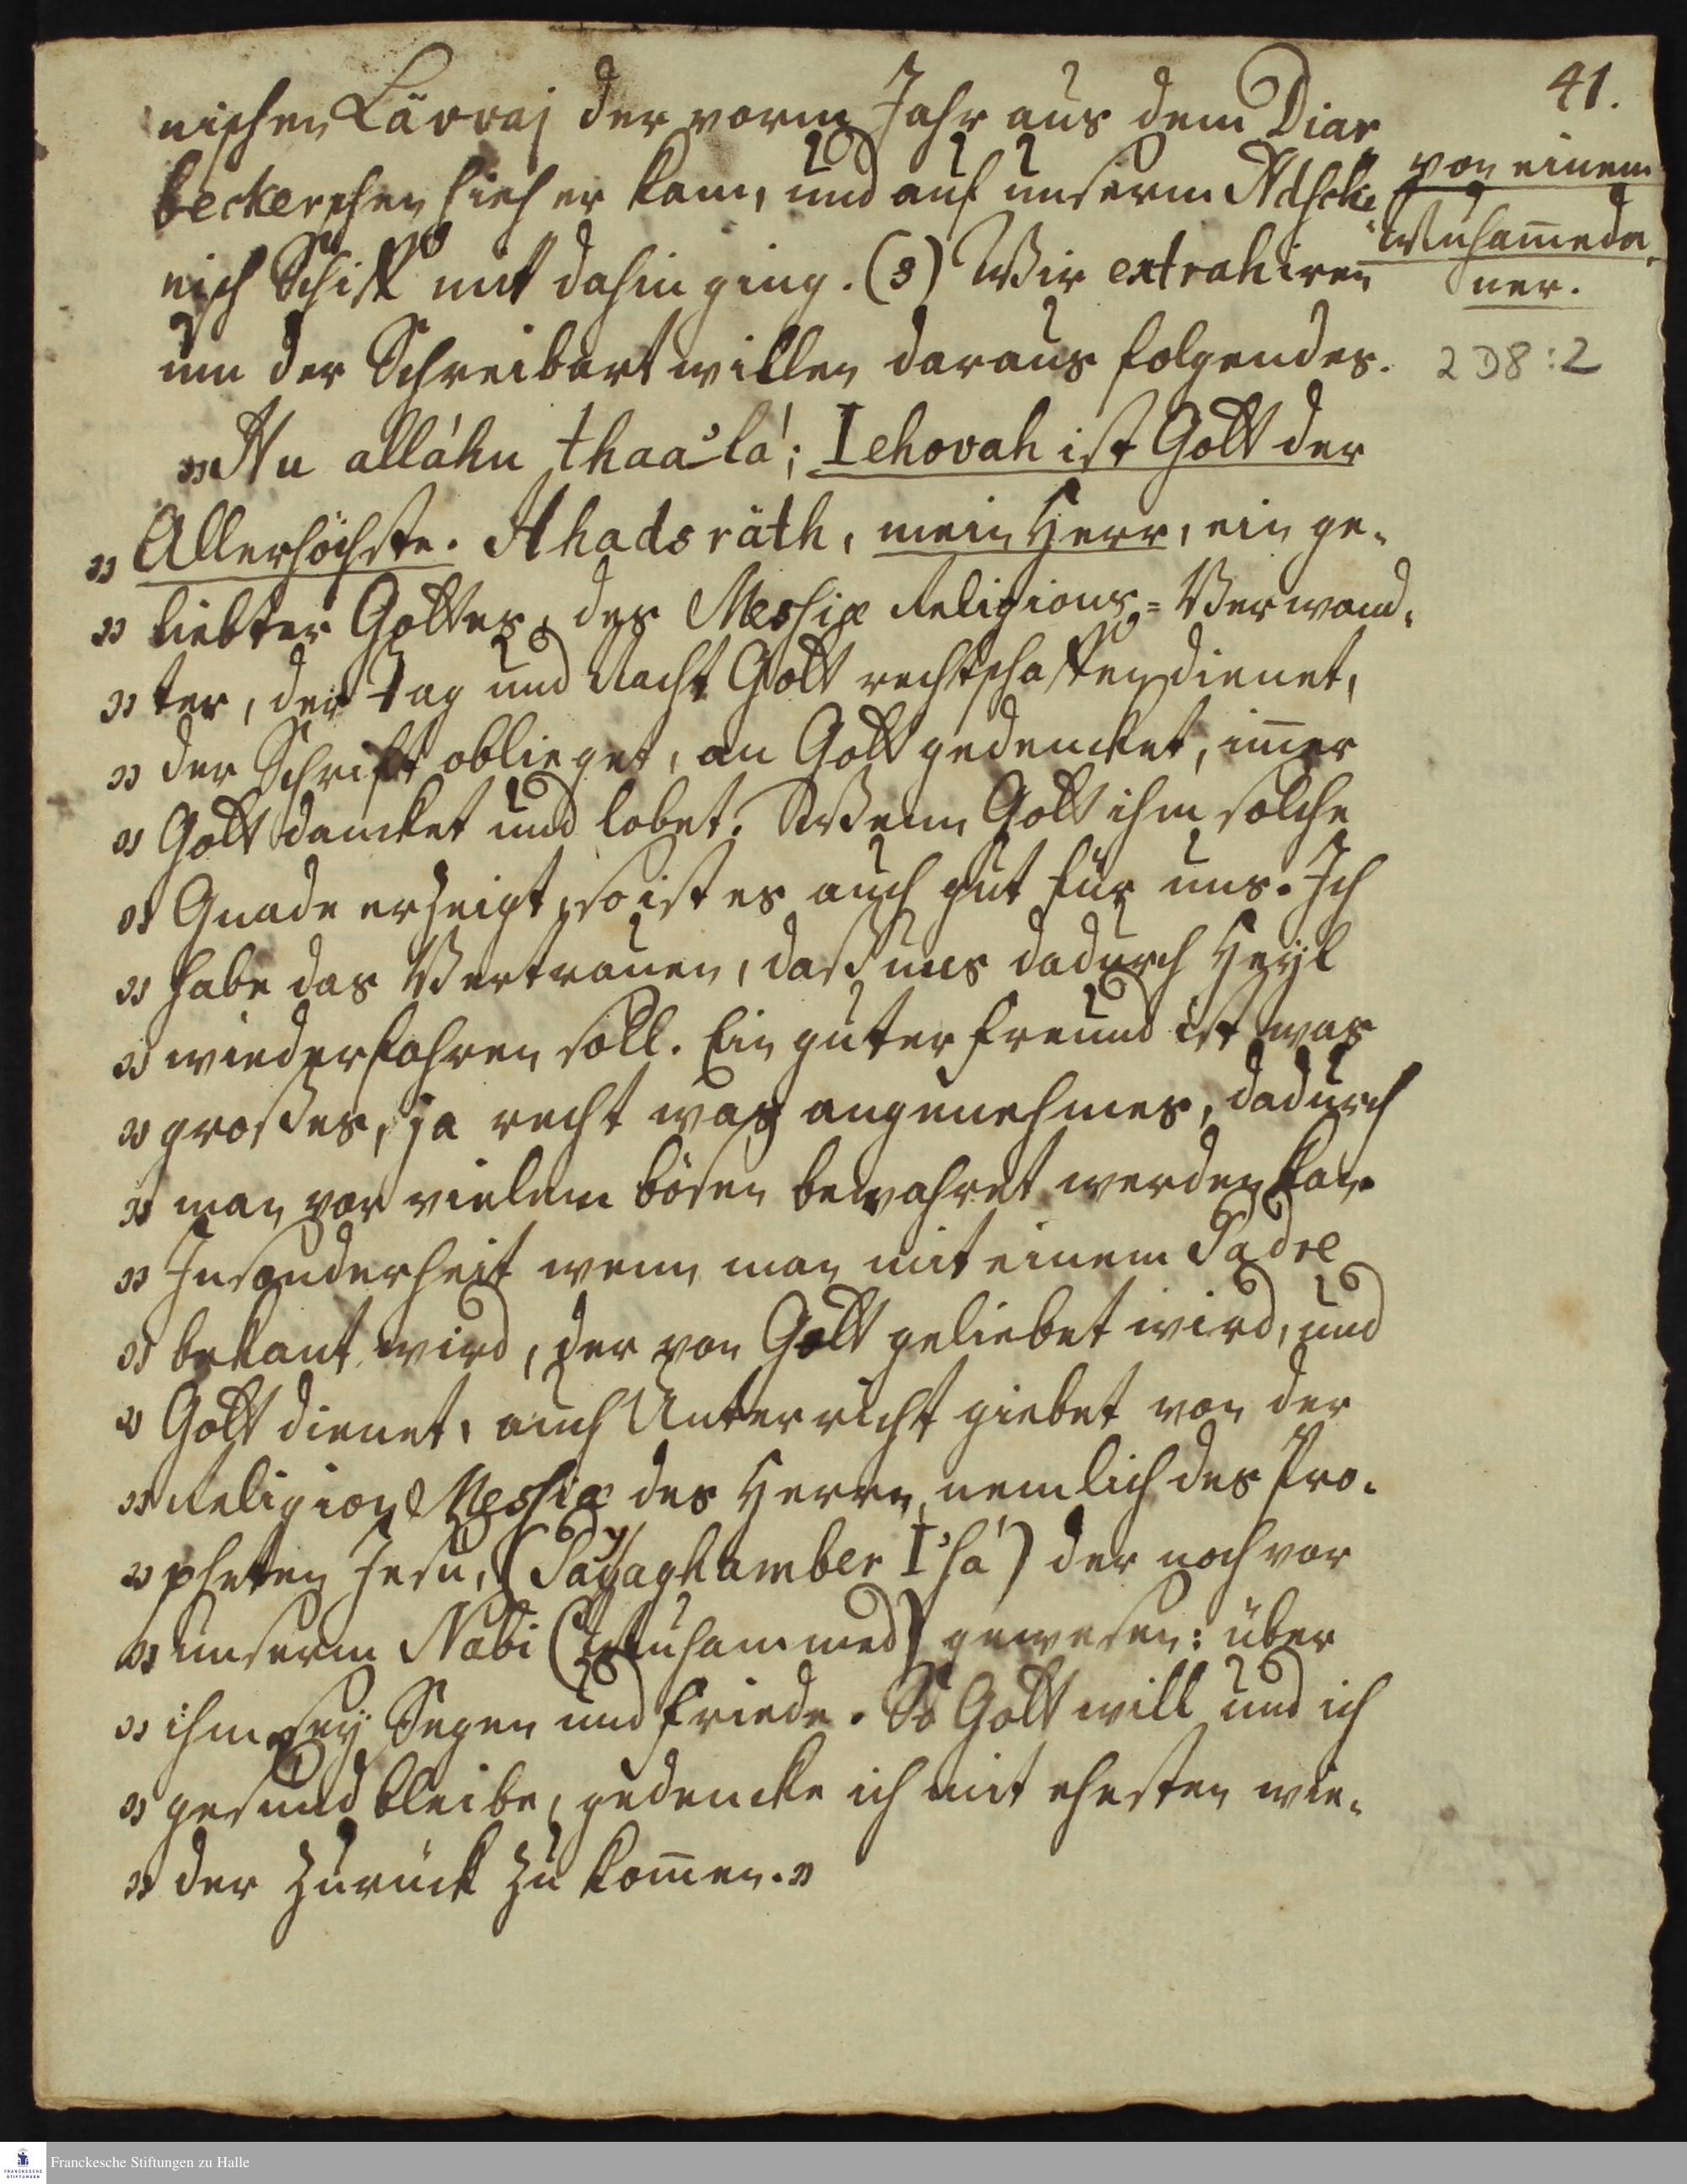 41.
nischen Lävvaj der vorm Jahr aus dem Diar
beckerschen hieher kam, und auf unserm Atsche
nisch Schiff mit dahin ging. (s) Wir extrahiren
um der Schreibart willen daraus folgendes.
von einem
Muham̄eda
ner.
2 D8:2
„Hu alláhu thaa'lá; Iehovah ist Gott der
„Allerhöchste. Ahadsräth, mein Herr, ein ge-
„liebter Gottes, des Messiæ Religions=Verwand-
„ter, der Tag und Nacht Gott rechtschaffen dienet,
„der Schrift oblieget, an Gott gedencket, im̄er
„Gott dancket und lobet. Wenn Gott ihm solche
„Gnade erzeigt, so ist es auch gut für uns. Ich
„habe das Vertrauen, daß uns dadurch Heyl
„wiederfahren soll. Ein guter Freund ist was
„großes, ja recht was angenehmes, dadurch
„man vor vielem bösen bewahret werden kan.
„Insonderheit wenn man mit einem Padre
„bekant wird, der von Gott geliebet wird, und
„Gott dienet, auch Unterricht giebet von der
„Religion Messiæ des Herrn, nemlich des Pro-
„pheten Jesu, (Payaghamber I'sá) der noch vor
„unserm Nabi (Muhammed) gewesen: über
„ihm sey Segen und Friede. So Gott will und ich
„gesund bleibe, gedencke ich mit ehesten wie-
„der zurück zu kom̄en.„
Franckesche Stiftungen zu Halle
FRANCKESCHE
STIFTUNGEN